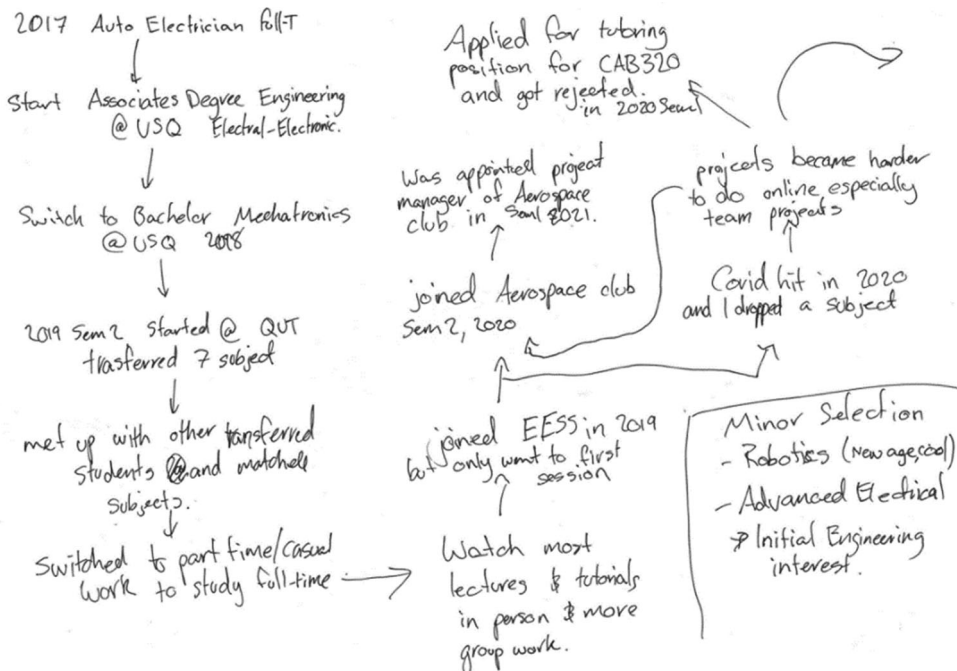 2017 Auto Electrician full-T
Start Associates Degree Engineering
@ USQ Electral-Electronic.
Switch to Bachelor Mechatronics
@ USQ 2018
2019 Sem 2 Started @ QUT
trasferred 7 subject
met up with other transferred
students and matched
subjects.
Switched to part time/casual
work to study full-time
Watch most
lectures & tutorials
in person & more
group work.
joined EESS in 2019
but only went to first
session
joined Aerospace club
Sem 2, 2020
Was appointed project
manager of Aerospace
club in Sem1 2021.
Covid hit in 2020
and I dropped a subject
projects became harder
to do online, especially
team projects
Applied for tutoring
position for CAB320
and got rejected.
in 2020 Sem1
Minor Selection
- Robotics (New age, cool)
- Advanced Electical
→ Initial Engineering
interest.